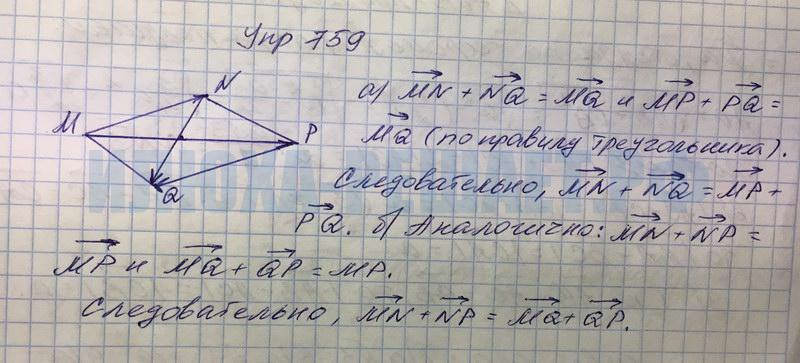 Упр 759
N
M
P
Q
а) MN + NQ = MQ и MP + PQ =
MQ (по правилу треугольника).
Следовательно, MN + NQ = MP +
PQ. б) Аналогично: MN + NP =
MP и MQ + QP = MP.
Следовательно, MN + NP = MQ + QP.